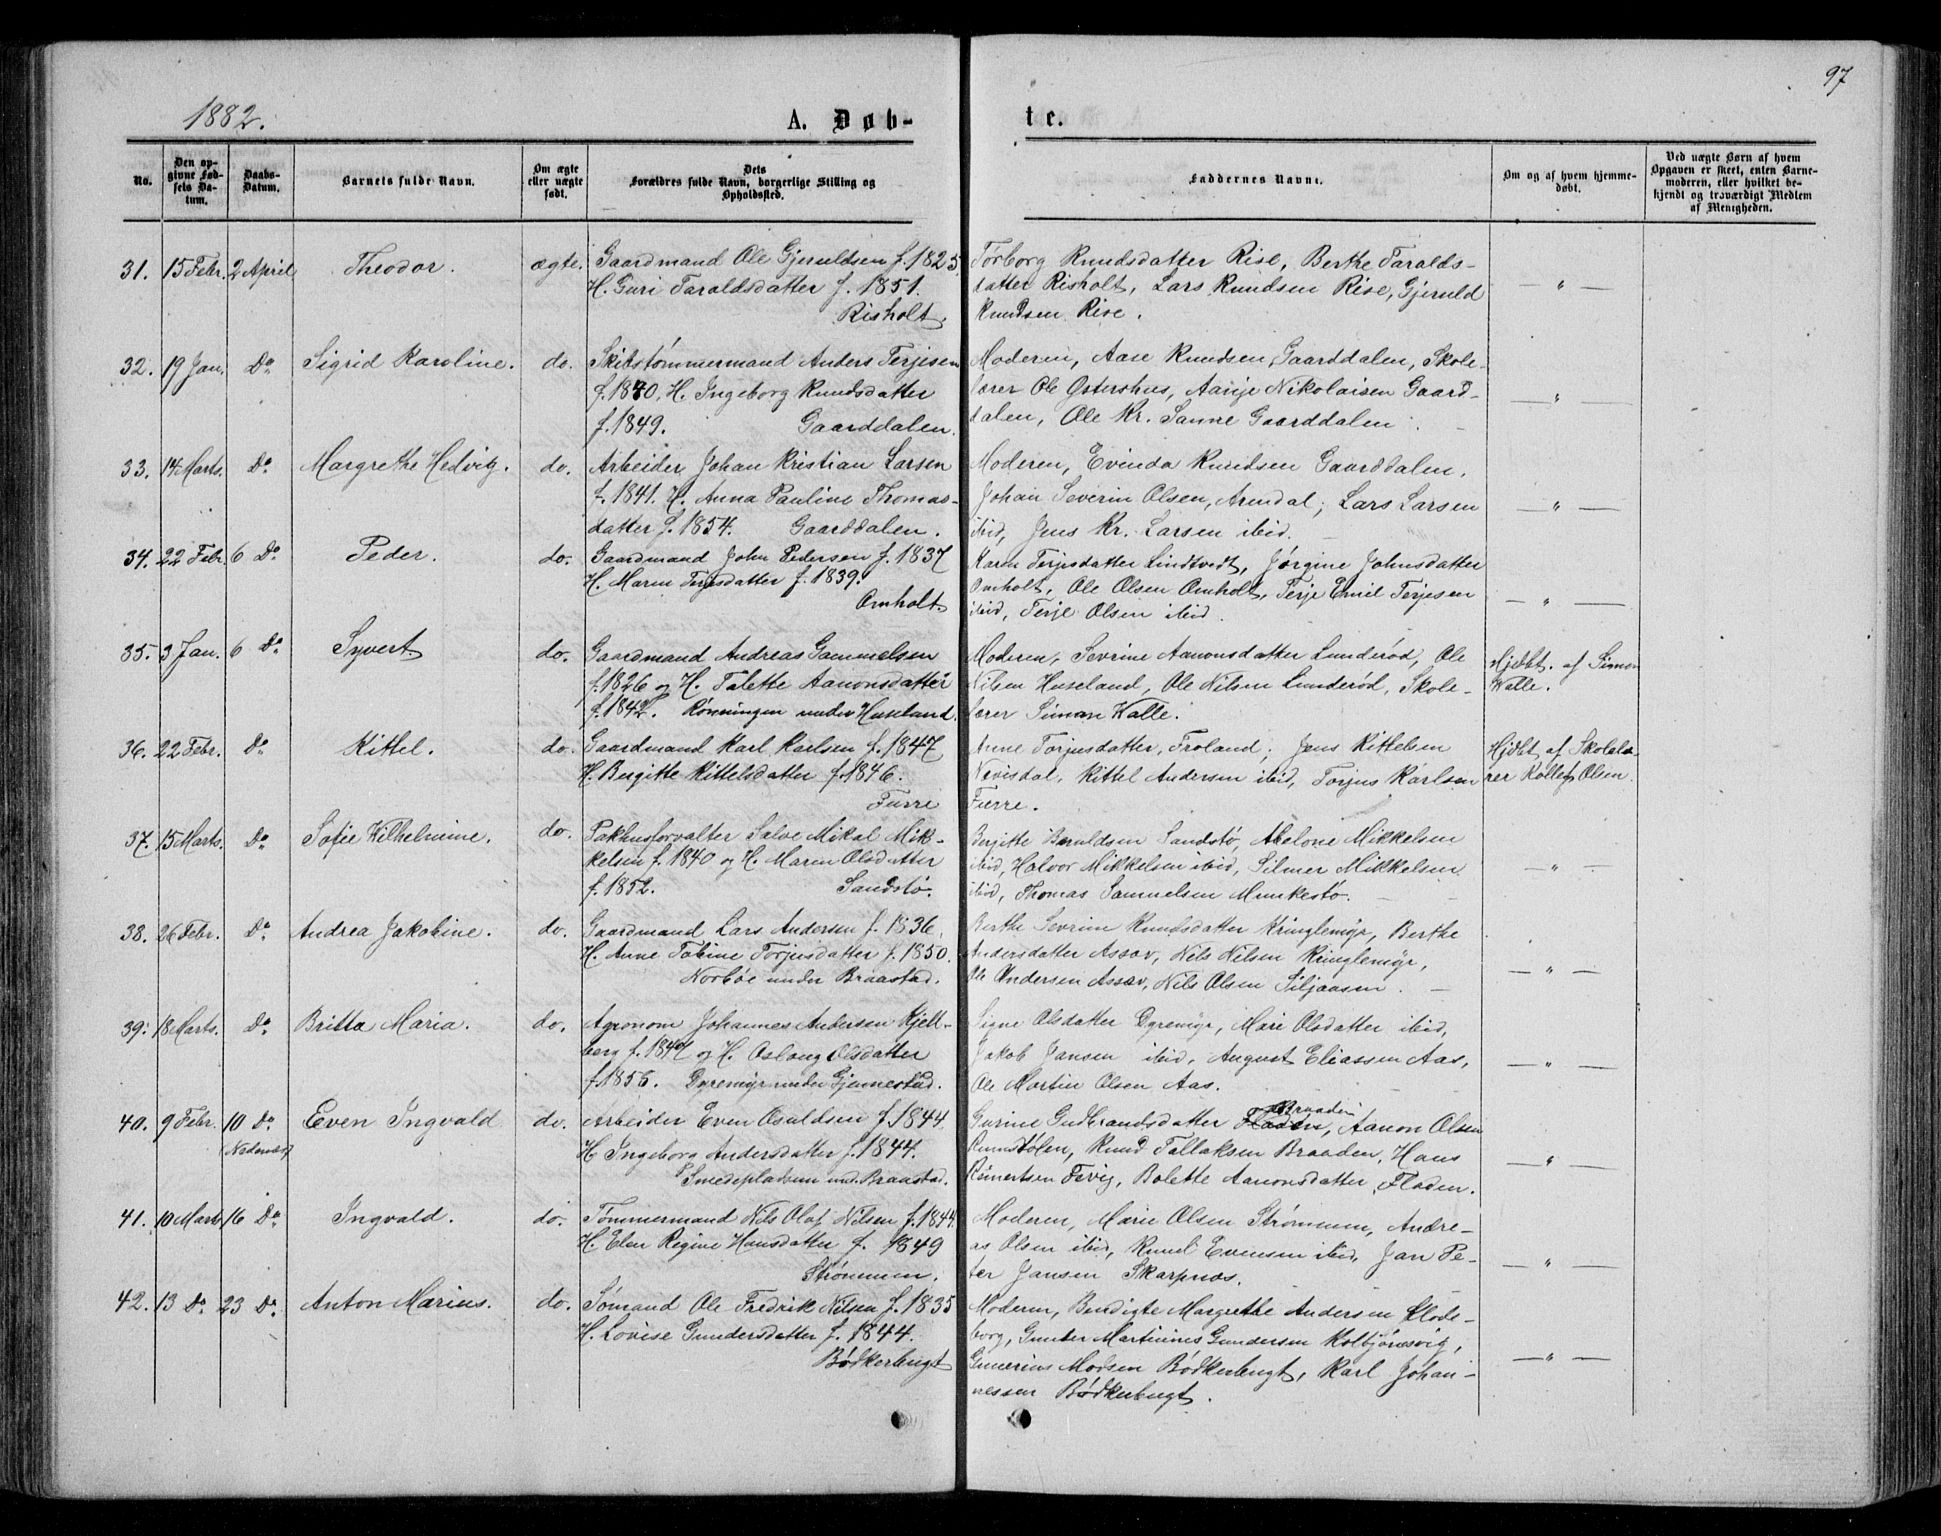 97
1882.
A. Døb-
te.
No.
Den op-
givne Fød-
sels Da-
tum.
Daabs-
Datum.
Barnets fulde Navn.
Om ægte
eller uægte
født.
Dets
Forældres fulde Navn, borgerlige Stilling og
Opholdssted.
Faddernes Navne.
Om og af hvem hjemme-
døbt.
Ved uægte Børn af hvem
Opgaven er skeet, enten Barne-
moderen, eller hvilket be-
kjendt og troværdigt Medlem
af Menigheden.
31. 15 Febr. 2 April Theodor. ægte. Gaardmand Ole Gjeruldsen f. 1825,
H. Guri Taraldsdatter f. 1851.
Risholt.
Torborg Knudsdatter Rise, Berthe Taralds-
datter Risholt, Lars Knudsen Rise, Gjeruld
Knudsen Rise.
— " —
32. 19 Jan. Do Sigrid Karoline. do. Skibstømmermand Anders Terjesen
f. 1840, H. Ingeborg Knudsdatter
f. 1849. Gaarddalen.
Moderen, Aase Knudsen Gaarddalen, Skole-
lærer Ole Østershus, Aanje Nikolaisen Gaard-
dalen, Ole Kr. Sanne Gaarddalen.
— " —
33. 14 Marts. Do Margrethe Hedvig. do. Arbeider Johan Kristian Larsen
f. 1841. H. Anna Pauline Thomas-
datter f. 1854. Gaarddalen.
Moderen, Evinda Knudsen Gaarddalen,
Johan Severin Olsen, Arendal, Lars Larsen
ibid, Jens Kr. Larsen ibid.
— " —
34. 22 Febr. 6 Do Peder. do. Gaardmand John Pedersen f. 1837
H. Maren Terjesdatter f. 1839.
Omholt.
Karen Terjesdatter Lindtvedt, Jørgine Johnsdatter
Omholt, Ole Olsen Omholt, Terje Emil Terjesen
ibid, Terje Olsen ibid.
— " —
35. 3 Jan. 6 Do Syvert do. Gaardmand Andreas Gammelsen
f. 1826 og H. Talette Aanonsdatter
f. 1842. Rønningen under Huseland.
Moderen, Sevrine Aanonsdatter Lunderød, Ole
Nilsen Huseland, Ole Nilsen Lunderød, Skole-
lærer Simon Walle.
Hjdbt. af Simon
Walle.
36. 22 Febr. Do Kittel. do. Gaardmand Karl Karlsen f. 1847
H. Birgitte Kittelsdatter f. 1846.
Furre
Anne Torjusdatter, Froland, Jens Kittelsen
Nævisdal, Kittel Andersen ibid, Torjus Karlsen
Furre.
Hjdbt af Skolelæ-
rer Kollef Olsen.
37. 15 Marts. Do Sofie Wilhelmine. do. Pakhusforvalter Salve Mikal Mik-
kelsen f. 1840 og H. Maren Olsdatter
f. 1852. Sandstø.
Bergitte Beruldsen Sandstø, Abelone Mikkelsen
ibid, Halvor Mikkelsen ibid, Silmer Mikkelsen
ibid, Thomas Samuelsen Munkestø.
— " —
38. 26 Febr. Do Andrea Jakobine. do. Gaardmand Lars Andersen f. 1836.
H. Anne Tobine Torjusdatter f. 1850.
Norbøe under Braastad.
Berthe Sevrine Knudsdatter Kringlemyr, Berthe
Andersdatter Assæv, Nils Nilsen Kringlemyr,
Ole Andersen Assæv, Nils Olsen Siljaasen.
— " —
39. 18 Marts. Do Britta Maria. do. Agronom Johannes Andersen Kjell-
berg f. 1847 og H. Aslaug Olsdatter
f. 1856. Dyremyr under Gjennestad.
Signe Olsdatter Dyremyr, Mari Olsdatter ibid,
Jakob Jansen ibid, August Eliassen Aas,
Ole Martin Olsen Aas.
— " —
40. 9 Febr. 10 Do Even Ingvald do. Arbeider Even Osuldsen f. 1844
(Nedenæs)
H. Ingeborg Andersdatter f. 1844.
Smedepladsen und. Braastad.
Braaden
Gurine Gudbrandsdatter Fladen, Aanon Olsen
Rundstølen, Knud Tallaksen Braaden, Hans
Reinertsen Fevig, Bolette Aanonsdatter, Fladen.
— " —
41. 10 Marts 16 Do Ingvald. do. Tømmermand Nils Olaf Nilsen f. 1844.
H. Elen Regine Hansdatter f. 1849
Strømmen.
Moderen, Marie Olsen Strømmen, Andre-
as Olsen ibid, Knud Evensen ibid, Jan Pe-
ter Jansen Skarpnæs.
— " —
42. 13 Do 23 Do. Anton Marius. do. Sømand Ole Fredrik Nilsen f. 1835
H. Lovise Gundersdatter f. 1844.
Bødkerbugt
Moderen, Bendigte Margrethe Andersen Klode-
borg, Gunder Martinius Gundersen Kolbjørnsvig,
Gunerius Madsen Bødkerbugt, Karl Johan-
nessen Bødkerbugt.
— " —